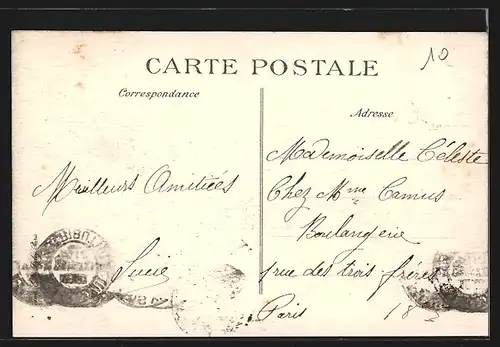 10
CARTE POSTALE
Correspondance
Adresse
Mademoiselle Céleste
Chez Mme Camus
Meilleurs Amitiées
Boulangerie
Lucie
rue des trois frères
Paris 18